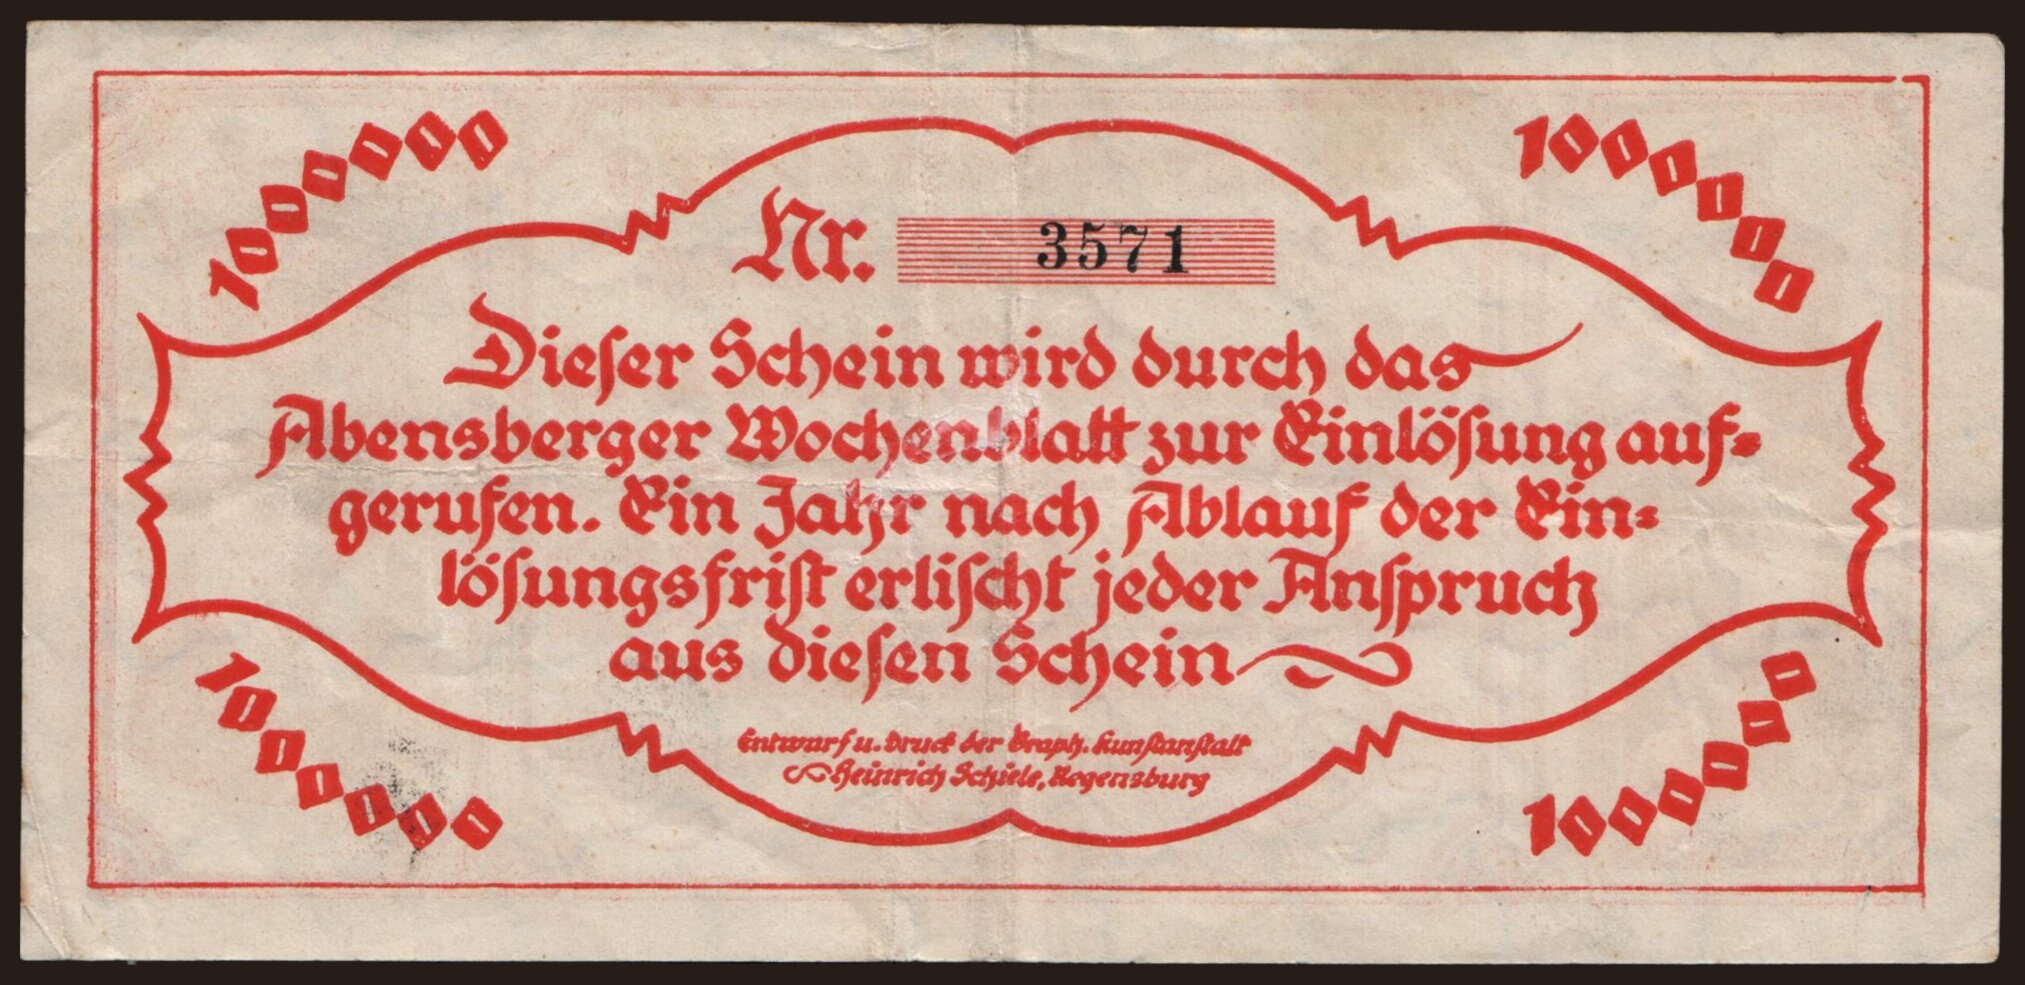 1000000
1000000
Nr. 3571
Dieser Schein wird durch das
Abensberger Wochenblatt zur Einlösung auf=
gerufen. Ein Jahr nach Ablauf der Ein=
lösungsfrist erlischt jeder Anspruch
aus diesen Schein
Entwurf u. Druck der Graph. Kunstanstalt
Heinrich Schiele, Regensburg
1000000
1000000